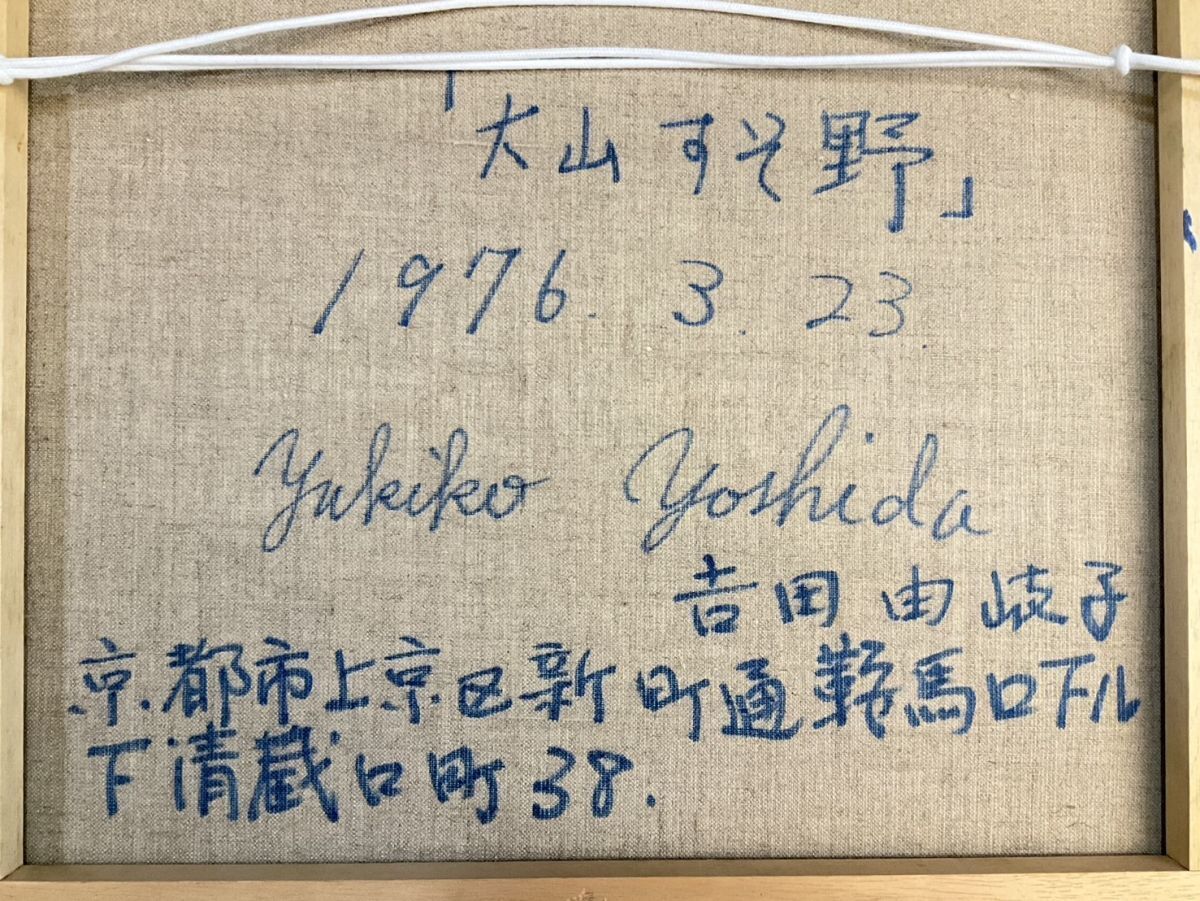 「大山すそ野」
1976. 3. 23.
Yukiko Yoshida
吉田 由岐子
京都市上京区新町通鞍馬口下ル
下清蔵口町38.